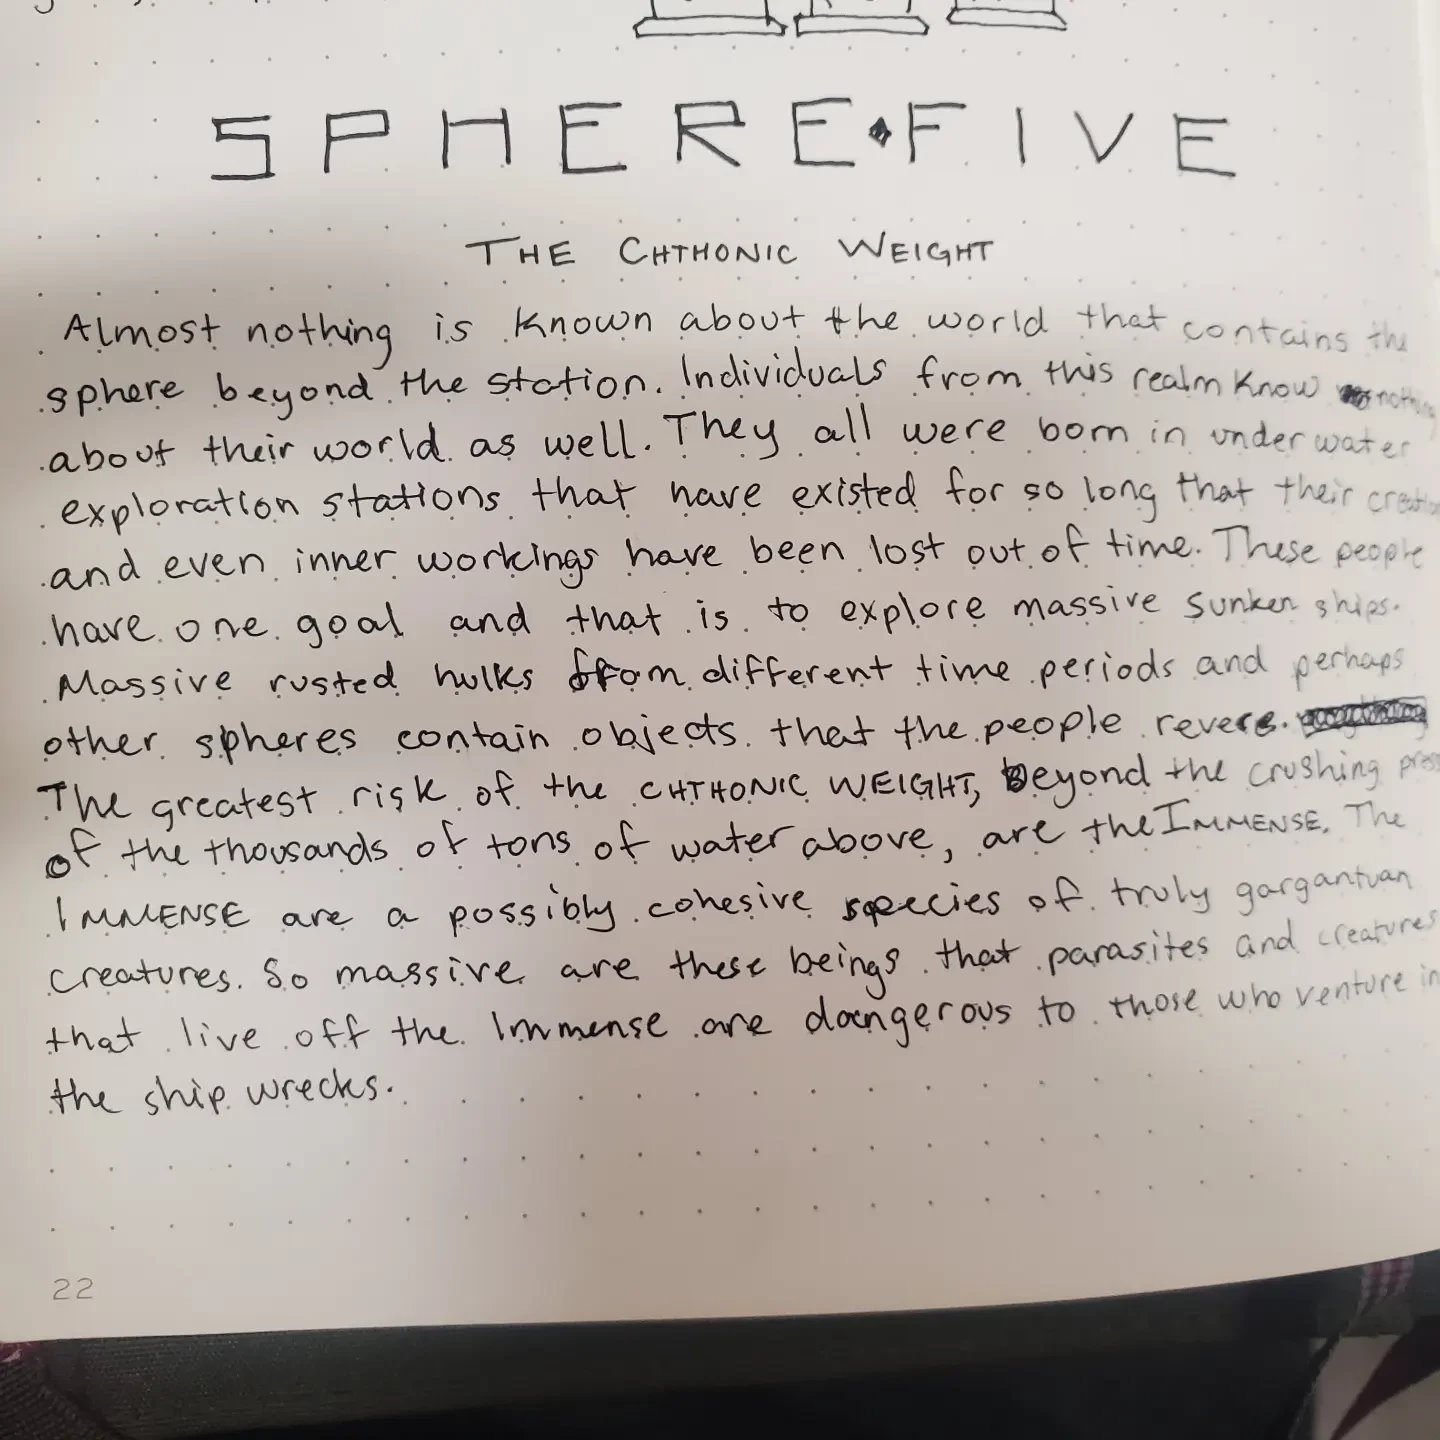 SPHERE◆FIVE
THE CHTHONIC WEIGHT
Almost nothing is known about the world that contains the
sphere beyond the station. Individuals from this realm know nothing
about their world as well. They all were born in underwater
exploration stations that have existed for so long that their creation
and even inner workings have been lost out of time. These people
have one goal and that is to explore massive sunken ships.
Massive rusted hulks from different time periods and perhaps
other spheres contain objects that the people revere.
The greatest risk of the CHTHONIC WEIGHT, Beyond the crushing
of the thousands of tons of water above, are the IMMENSE. The
IMMENSE are a possibly cohesive species of truly gargantuan
creatures. So massive are these beings that parasites and creatures
that live off the Immense are dangerous to those who venture in
the ship wrecks.
22